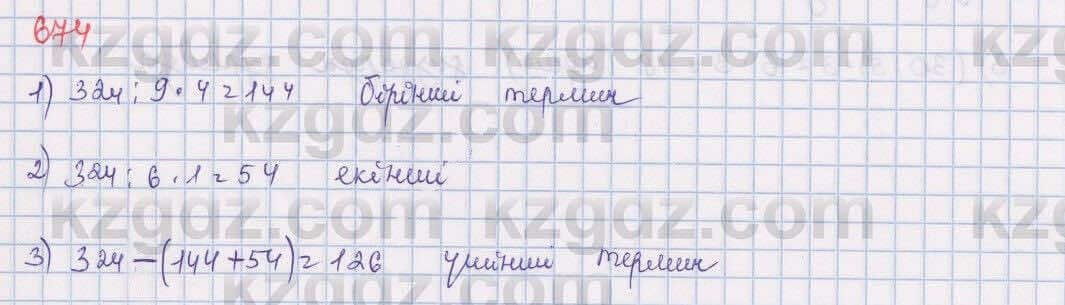 674
kzgdz.com kzgdz.com kz
1) 324 : 9 · 4 = 144 бірінші термин
kzgdz.com
2) 324 : 6 · 1 = 54 екінші
kzgdz.com kzgdz.com kz
3) 324 - (144 + 54) = 126 үшінші термин
kzgdz.com